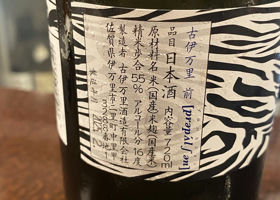 古伊万里 前 [prəpilʃən]
品目 日本酒 内容量 720ml
原材料名 米(国産)米麹(国産米)
精米歩合 55% アルコール分16度
製造者 古伊万里酒造有限会社
佐賀県伊万里市二里町中里